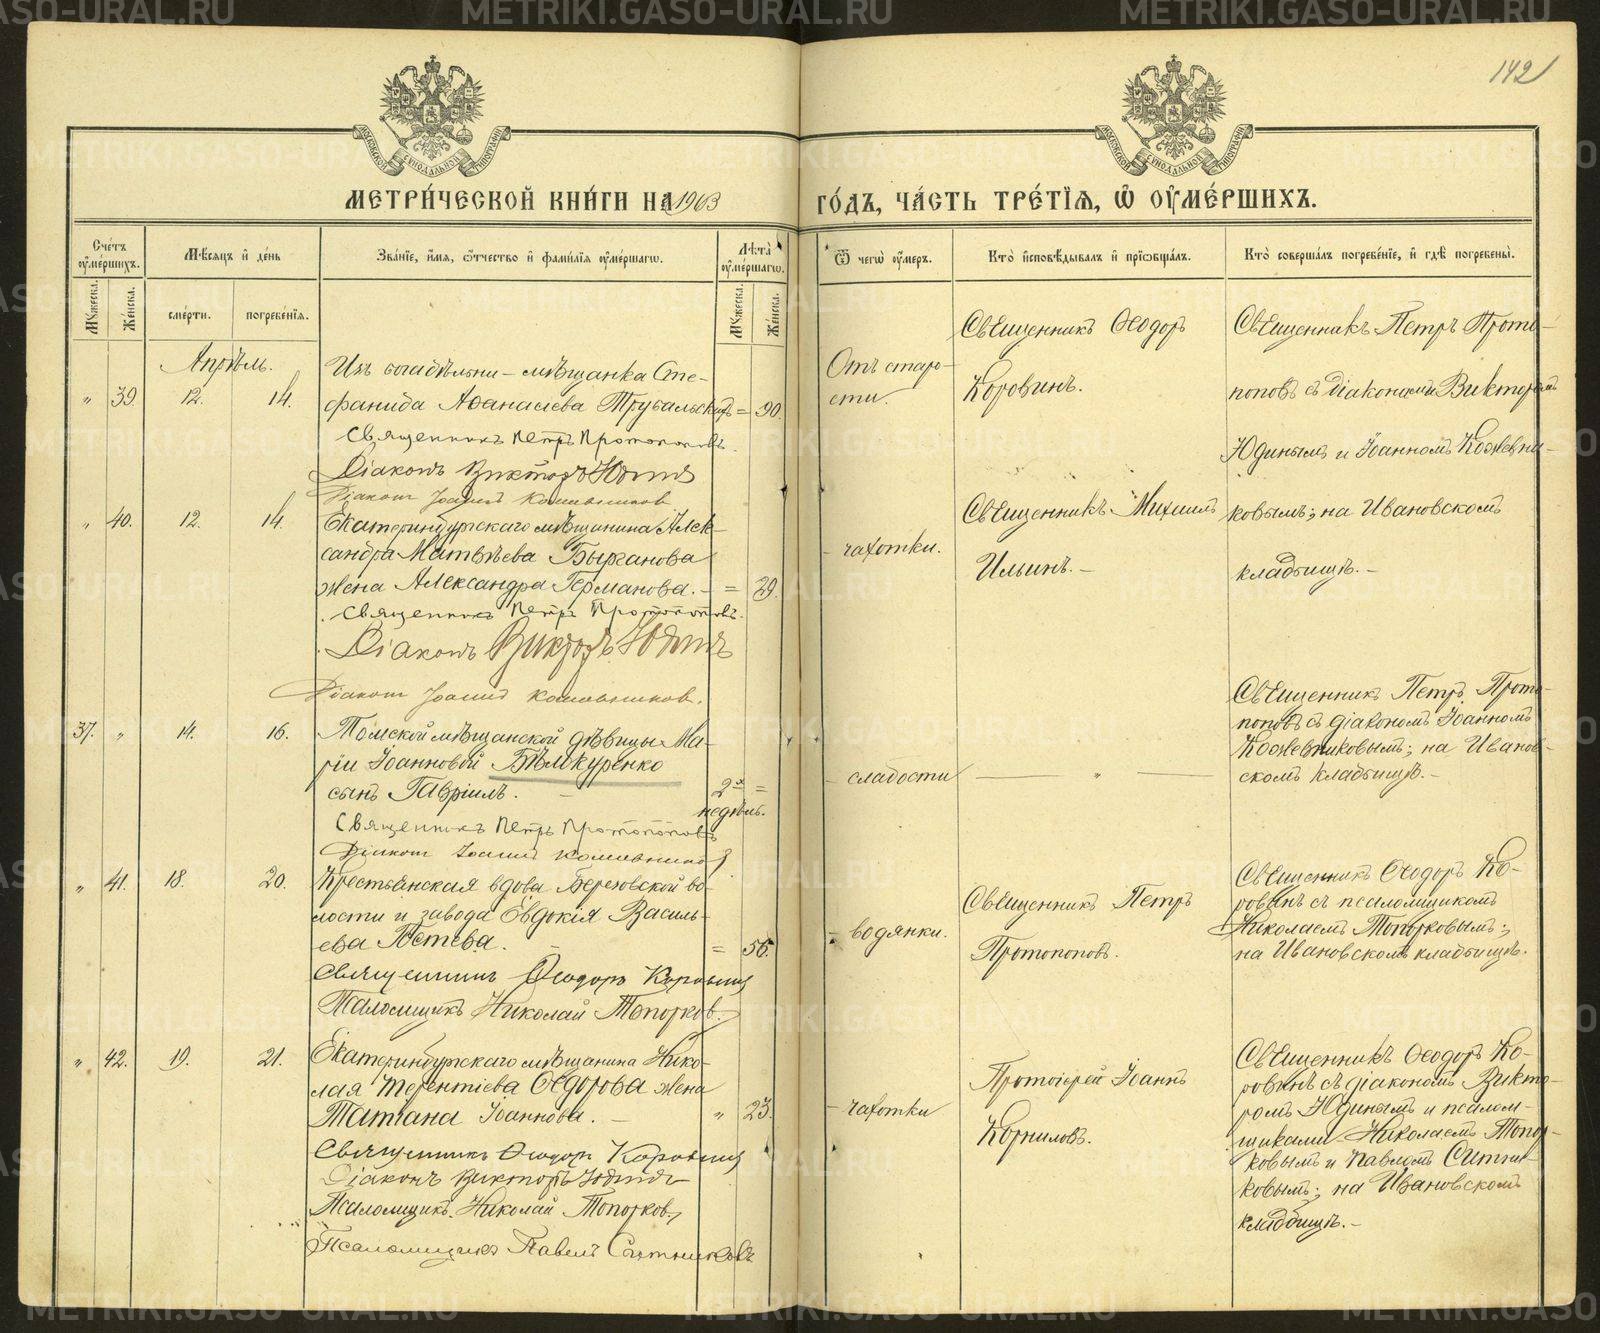 142
МОСКОВСКОЙ СѴНОДАЛЬНОЙ ТИПОГРАФІИ
МОСКОВСКОЙ СѴНОДАЛЬНОЙ ТИПОГРАФІИ
МЕТРИ́ЧЕСКОЙ КНИ́ГИ НА 1903 ГО́ДЪ, ЧА́СТЬ ТРЕ́ТІѦ, Ѿ ОУ҆МЕ́РШИХЪ.
Счетъ оумершихъ.
Мѣсяцъ и день
Званіе, имя, отчество и фамилія оумершагѡ.
Лѣта оумершагѡ.
Мꙋжеска. Женска.
смерти. погребенія.
Мꙋжеска. Женска.
Ѿ чегѡ оумеръ.
Кто исповѣдывалъ и пріѡбщалъ.
Кто совершалъ погребеніе, и гдѣ погребены.
Апрѣль.
" 39. 12. 14.
Изъ богадѣльни - мѣщанка Сте-
фанида Аѳанасіева Трубальскихъ = 90.
Священникъ Петръ Протопоповъ
Діаконъ Викторъ Юдинъ
Діаконъ Іоаннъ Кожевников
Отъ старо-
сти.
Священникъ Ѳеодоръ
Коровинъ.
Священникъ Петръ Прото-
поповъ съ діаконами Викторомъ
Юдинымъ и Іоанномъ Кожевни-
ковымъ; на Ивановскомъ
кладбищѣ. -
" 40. 12. 14.
Екатеринбургскаго мѣщанина Алек-
сандра Матвѣева
жена Александра Германова. - = 39.
Священникъ Петръ Протопоповъ.
Діаконъ Викторъ Юдинъ
Діаконъ Іоаннъ Кожевников.
чахотки.
Священникъ Михаилъ
Ильинъ. -
37. " 14. 16.
Томской мѣщанской дѣвицы Ма-
ріи Іоанновой Бѣлокуренко
сынъ Гавріилъ. - 2хъ =
недѣль.
Священникъ Петръ Протопоповъ
Діаконъ Іоаннъ Кожевников
слабости
"
Священникъ Петръ Прото-
поповъ съ діакономъ Іоанномъ
Кожевниковымъ; на Иванов-
скомъ кладбищѣ. -
" 41. 18. 20.
Крестьянская вдова Березовской во-
лости и завода Евдокія Василь-
ева = 56.
Священникъ Ѳеодоръ Коровинъ
Псаломщикъ Николай Топорков.
водянки.
Священникъ Петръ
Протопоповъ.
Священникъ Ѳеодоръ Ко-
ровинъ съ псаломщикомъ
Николаемъ Топорковымъ;
на Ивановскомъ кладбищѣ.
" 42. 19. 21.
Екатеринбургскаго мѣщанина Нико-
лая Терентіева Ѳедорова жена
Татіана Іоаннова. - " 23.
Священникъ Ѳеодоръ Коровинъ
Діаконъ Викторъ Юдинъ
Псаломщикъ Николай Топорков.
Псаломщикъ Павелъ Ситниковъ
чахотки
Протоіерей Іоаннъ
Корниловъ.
Священникъ Ѳеодоръ Ко-
ровинъ съ діакономъ Викто-
ромъ Юдинымъ и псалом-
щиками Николаемъ Топор-
ковымъ и Павломъ Ситни-
ковымъ; на Ивановскомъ
кладбищѣ. -
METRIKI.GASO-URAL.RU